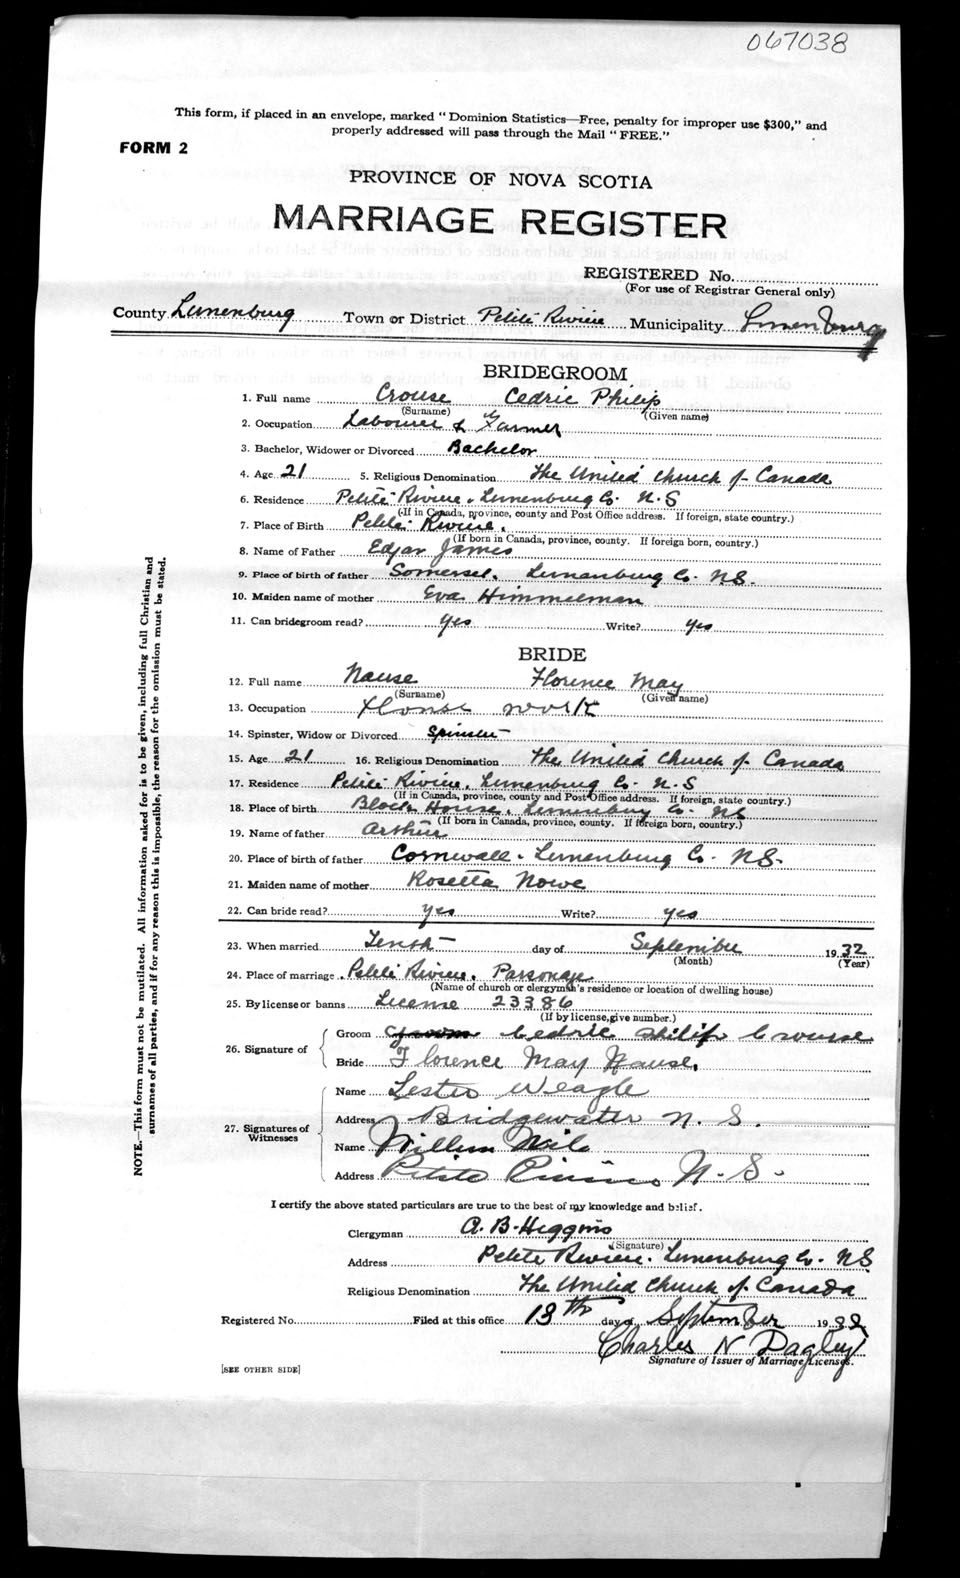 067038
This form, if placed in an envelope, marked "Dominion Statistics—Free, penalty for improper use $300," and
properly addressed will pass through the Mail "FREE."
FORM 2
PROVINCE OF NOVA SCOTIA
MARRIAGE REGISTER
REGISTERED No.
(For use of Registrar General only)
County Lunenburg Town or District Petite Riviere Municipality Lunenburg
BRIDEGROOM
1. Full name Crouse Cedric Philip
(Surname) (Given name)
2. Occupation Labourer & Farmer
3. Bachelor, Widower or Divorced Bachelor
4. Age 21 5. Religious Denomination The United Church of Canada
6. Residence Petite Riviere, Lunenburg Co. N.S
(If in Canada, province, county and Post Office address. If foreign, state country.)
7. Place of Birth Petite Riviere,
(If born in Canada, province, county. If foreign born, country.)
8. Name of Father Edgar James
9. Place of birth of father Somerset, Lunenburg Co. NS.
10. Maiden name of mother Eva Himmelman
11. Can bridegroom read? Yes Write? Yes
BRIDE
12. Full name Nause Florence May
(Surname) (Given name)
13. Occupation House work
14. Spinster, Widow or Divorced Spinster
15. Age 21 16. Religious Denomination The United Church of Canada
17. Residence Petite Riviere, Lunenburg Co. N.S
(If in Canada, province, county and Post Office address. If foreign, state country.)
18. Place of birth Block House, Lunenburg Co. NS
(If born in Canada, province, county. If foreign born, country.)
19. Name of father Arthur
20. Place of birth of father Cornwall, Lunenburg Co. NS.
21. Maiden name of mother Rosetta Nowe
22. Can bride read? Yes Write? Yes
23. When married Tenth day of September 1932
(Month) (Year)
24. Place of marriage Petite Riviere, Parsonage
(Name of church or clergyman's residence or location of dwelling house)
25. By license or banns License 23386
(If by license, give number.)
26. Signature of
Groom Cedric Philip Crouse
Bride Florence May Nause,
27. Signatures of Witnesses
Name Lester Weagle
Address Bridgewater N. S.
Name William
Address Petite Riviere N. S.
I certify the above stated particulars are true to the best of my knowledge and belief.
Clergyman A. B. Higgins
(Signature)
Address Petite Riviere, Lunenburg Co. NS
Religious Denomination The United Church of Canada
Registered No. Filed at this office 13th day of September 1932
Charles N Dagley
Signature of Issuer of Marriage Licenses.
[SEE OTHER SIDE]
NOTE.—This form must not be mutilated. All information asked for is to be given, including full Christian and
surnames of all parties, and if for any reason this is impossible, the reason for the omission must be stated.